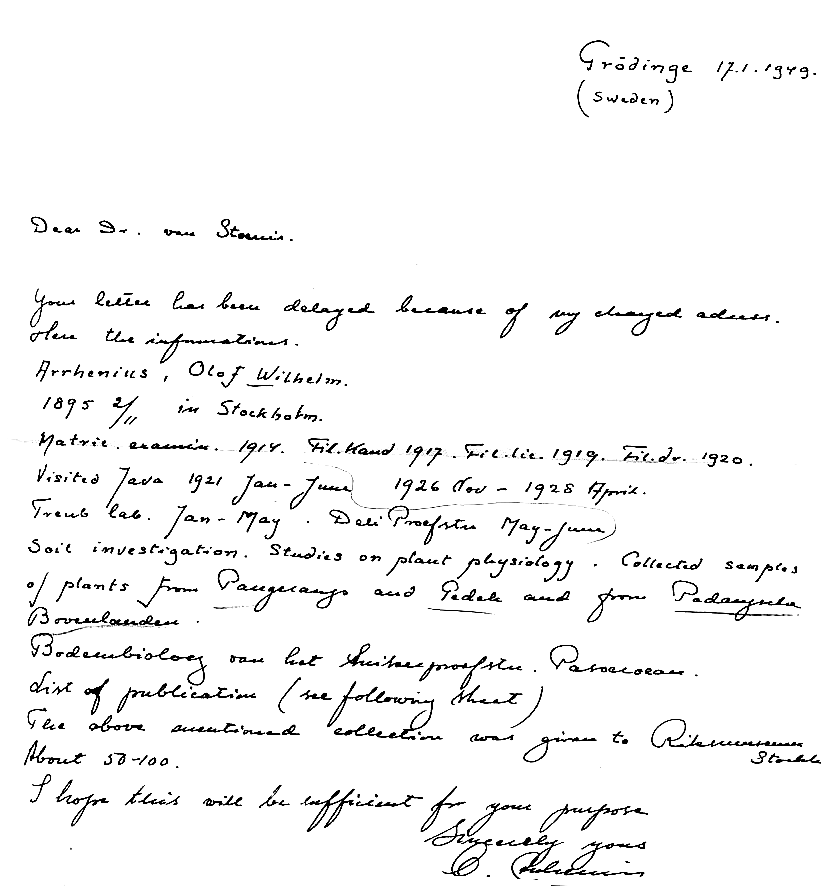 Grödinge 17.1.1949.
(Sweden)
Dear Dr. van Steenis.
Your letter has been delayed because of my changed adress.
Here the informations.
Arrhenius, Olof Wilhelm.
1895 2/11 in Stockholm.
Matric. examin. 1914. Fil. Kand 1917. Fil. lic. 1919. Fil. dr. 1920.
Visited Java 1921 Jan - June 1926 Nov - 1928 April.
Treub lab. Jan - May. Deli Proefstn May - June
Soil investigation. Studies on plant physiology. Collected samples
of plants from Pangerango and Gedeh and from Padangsche
Bovenlanden.
Bodembioloog van het Suikerproefstn. Pasoeroean.
List of publication (see following sheet)
The above mentioned collection was given to Riksmuseum
Stockh
About 50-100.
I hope this will be sufficient for your purpose
Sincerely yours
O. Arrhenius